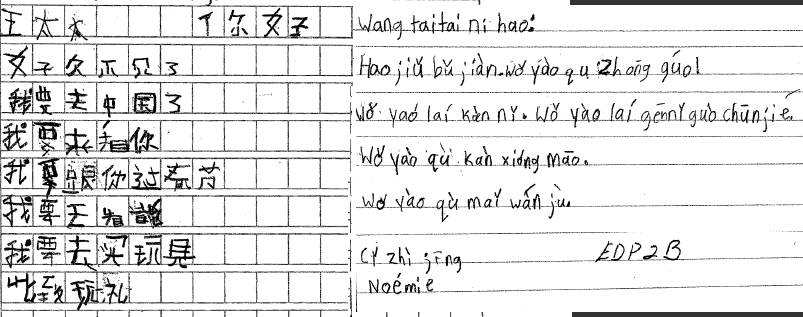 王太太 你好
好久不见了
我要去中国了
我要来看你
我要跟你过春节
我要去看
我要去买玩具
此致敬礼
Wang taitai ni hao:
Hao jiǔ bǔ jiàn. wǒ yào qu Zhōng guó!
Wǒ yaó laí kàn nǐ. Wǒ yào laí gēn nǐ guò chūn jié.
Wǒ yào qù kàn xióng māo.
wǒ yào qù maǐ wán jù.
Cǐ zhì jīng EDP2B
Noémie